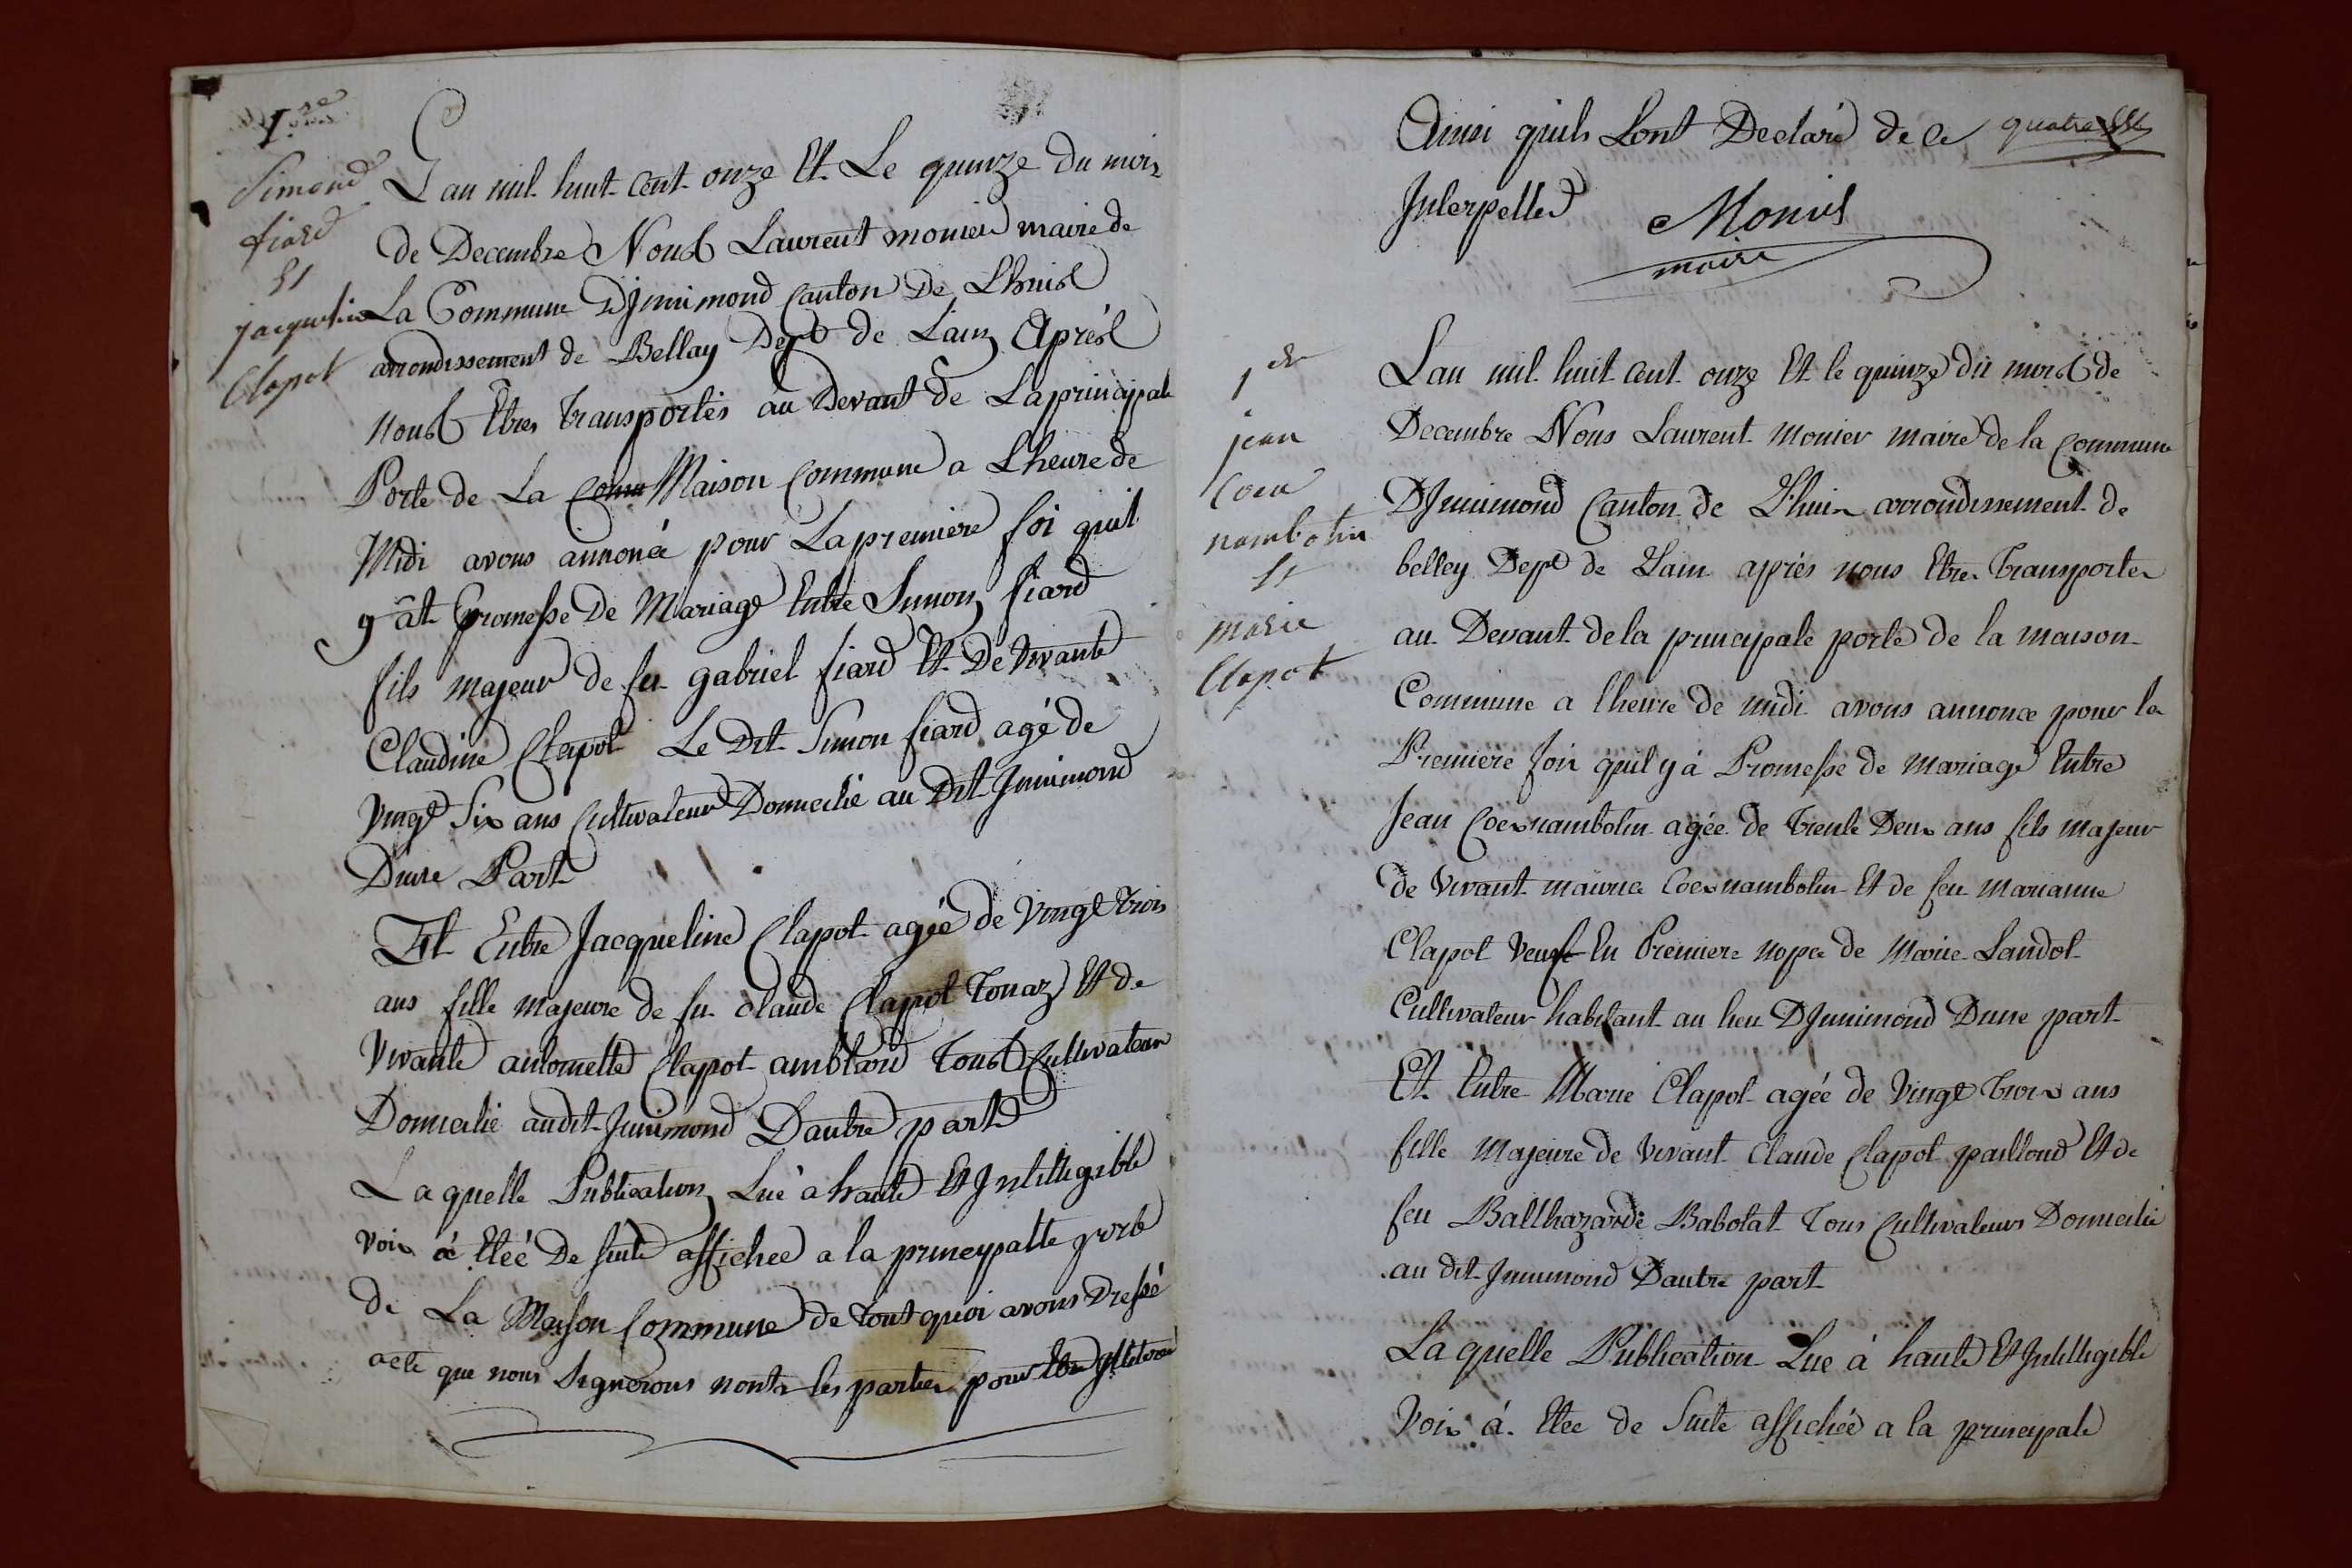 1re
Simond
fiard
Et
jacqueline
Clapot
L'an mil huit cent onze Et Le quinze du mois
de Decembre Nous Laurent monier maire de
La Commune D'Jnnimond Canton De Lhuis
arrondissement de Bellay Dept de Lain Aprés
nous Etres Transportés au Devant de La principale
Porte de La Maison Commune a Lheure de
Midi avons annoncé pour La premiere foi quil
y ât Promesse De Mariage Entre Simon fiard
fils majeur de fu gabriel fiard Et De vivante
Claudine Clapot Le Dit Simon fiard agé de
vingt Six ans Cultivateur Domicilié au Dit Jnnimond
Dune Part
Et Entre Jacqueline Clapot agée de vingt trois
ans fille majeure de fu claude Clapot Tonaz Et de
vivante antoinette Clapot amblard Tous Cultivateur
Domicilié audit Jnnimond Dautre part
La quelle Publication Lué à haute Et Jntilligible
voix á Eteé De suite affichee a la principalle porte
de La Maison Commune de tout quoi avons Dressé
acte que nous Signerons nonts les parties pour Etre Jlliteré
Ainsi quils Lont Declaré de ce
quatre
Jnterpelles
Monier
maire
1er
jean
Coeu
nambotin
Et
marie
Clapot
Lan mil huit cent onze Et le quinze du mois de
Decembre Nous Laurent Monier maire de la Commune
DJnnimond Canton de Lhuis arrondissement de
belley Dept de Lain aprés nous Etres Transportes
au Devant de la principale porte de la maison
Commune a lheure de midi avons annonce pour la
Premiere fois quil y á Promesse de mariage Entre
Jean Coeunambotin agée de Trente Deux ans fils majeur
de vivant maurice Coeunambotin Et de feu marianne
Clapot veuf En Premiere nopce de Marie Landot
Cultivateur habitant au lieu DJnnimond Dune part
Et Entre Marie Clapot agée de vingt Trois ans
fille majeure de vivant Claude Clapot paillond Et de
feu Balthazarde Babolat Tous Cultivateurs Domicilié
au dit Jnnimond Dautre part
La quelle Publication Lue à haute Et Jntilligible
voix á Etee de Suite affichée a la principale